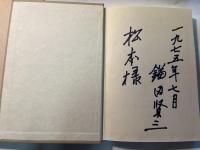 一九七五年七月
田賢三
松本様